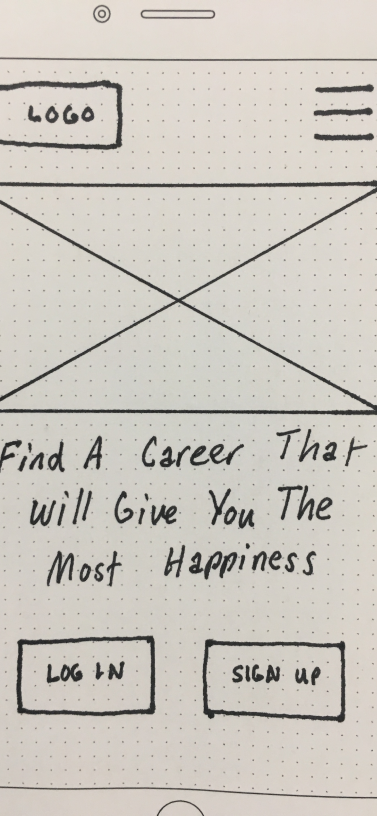 LOGO
Find A Career That
will Give You The
Most Happiness
LOG IN
SIGN UP